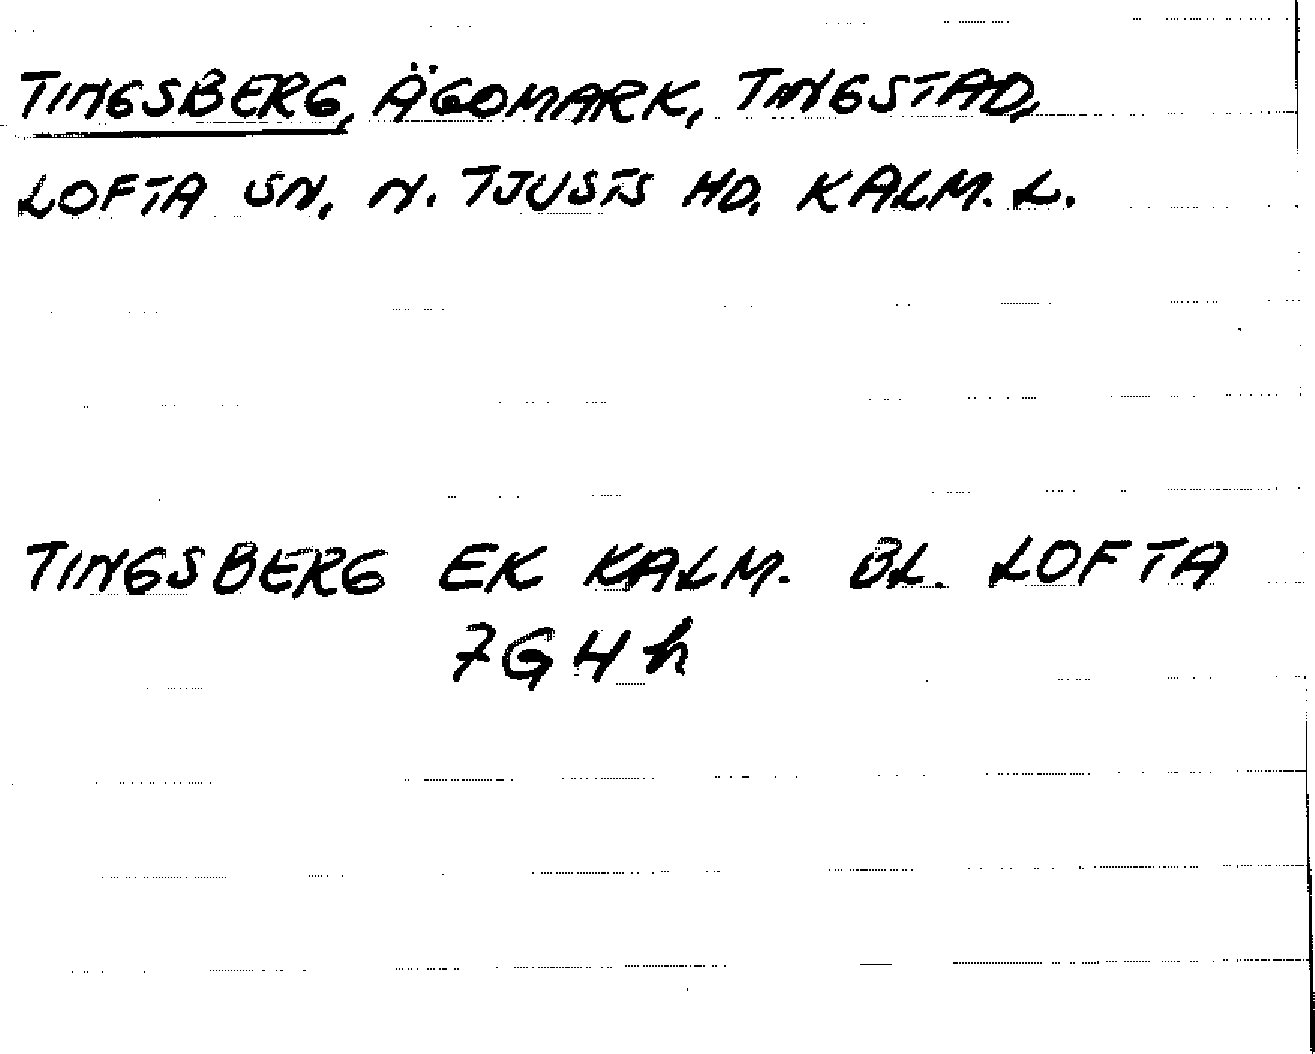 TINGSBERG, ÄGOMARK, TINGSTAD,
LOFTA SN, N. TJUSTS HD, KALM. L.
TINGSBERG EK KALM. BL. LOFTA
7G4h